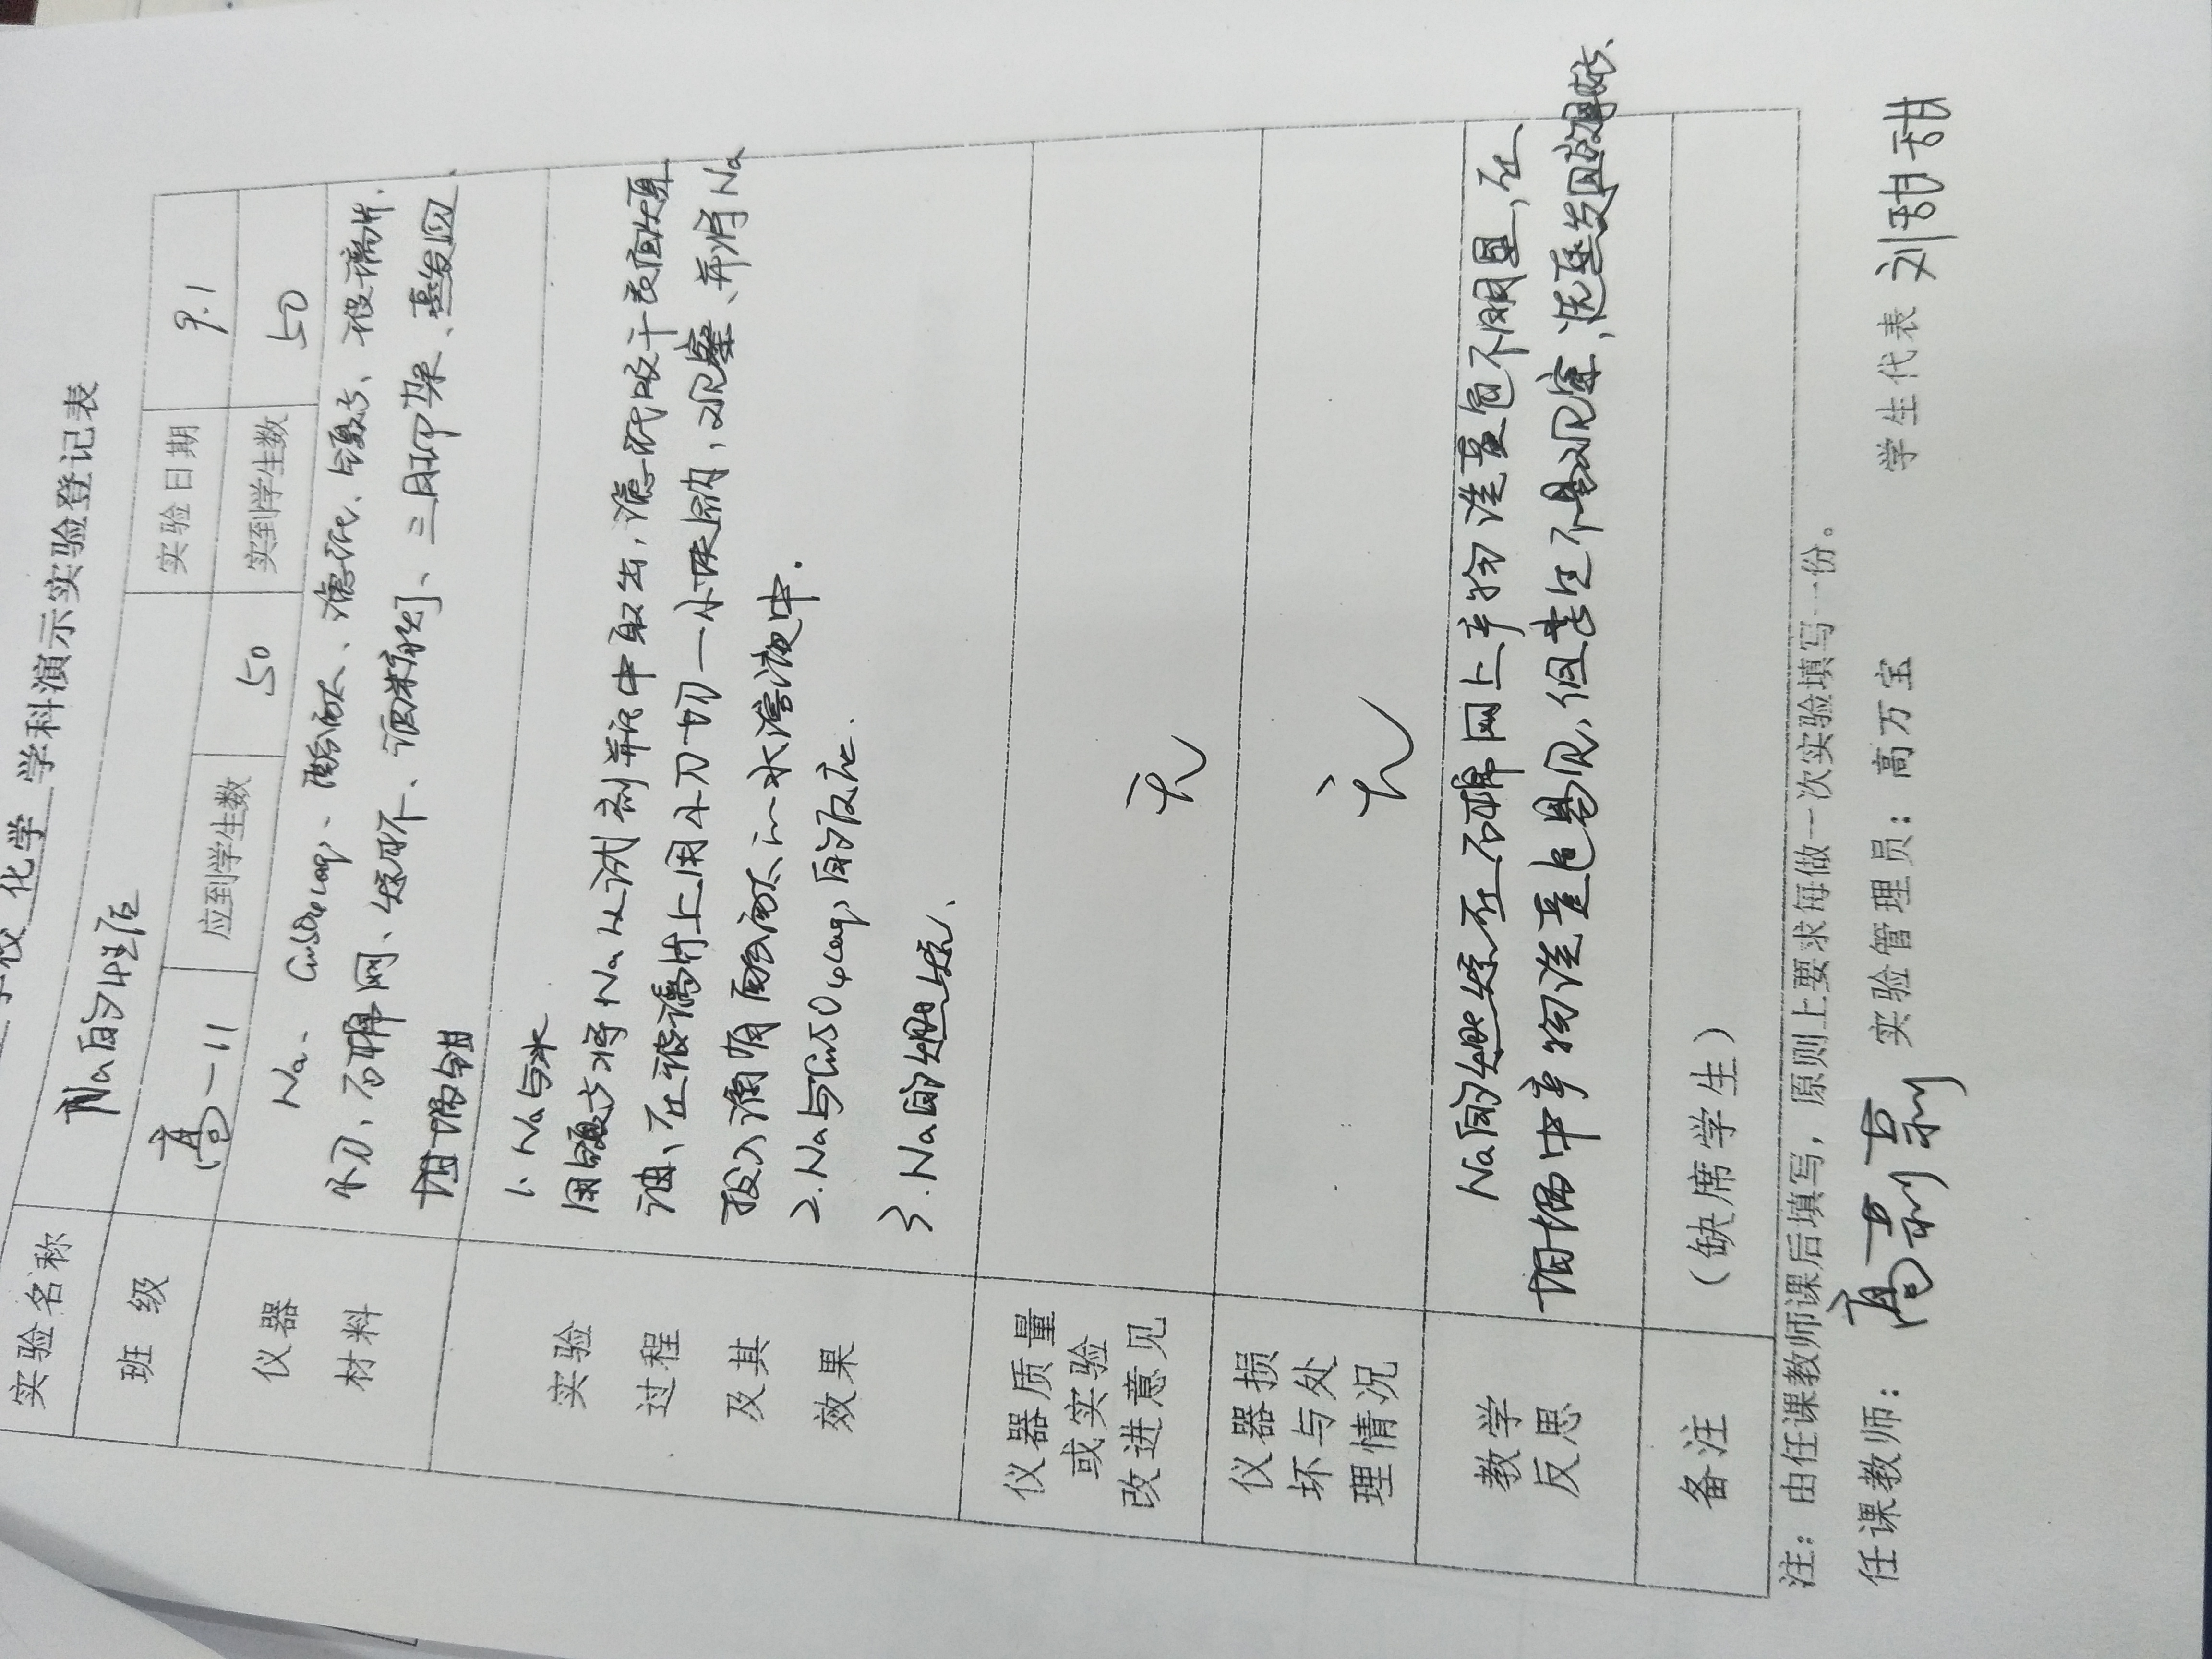 学校 化学 学科演示实验登记表
实验名称 Na的性质
实验日期 9.1
班 级 高一11 应到学生数 50 实到学生数 50
仪器
材料
Na、CuSO4(aq)、酚酞、滤纸、镊子、玻璃片、
小刀、石棉网、烧杯、酒精灯、三角架、蒸发皿、
坩埚钳
实验
过程
及其
效果
1. Na与水
用镊子将Na从试剂瓶中取出，滤纸吸干表面煤
油、在玻璃片上用小刀切一小块钠，观察、并将Na
投入滴有酚酞的水溶液中.
2. Na与CuSO4(aq)的反应.
3. Na的燃烧.
仪器质量
或实验
改进意见
无
仪器损
坏与处
理情况
无
教学
反思
Na的燃烧在石棉网上产物淡黄色不明显，在
坩埚中产物淡黄色易见，但学生不易观察，
备注
（缺席学生）
注：由任课教师课后填写，原则上要求每做一次实验填写一份。
任课教师： 高莉莉 实验管理员：高万宝 学生代表 刘甜甜